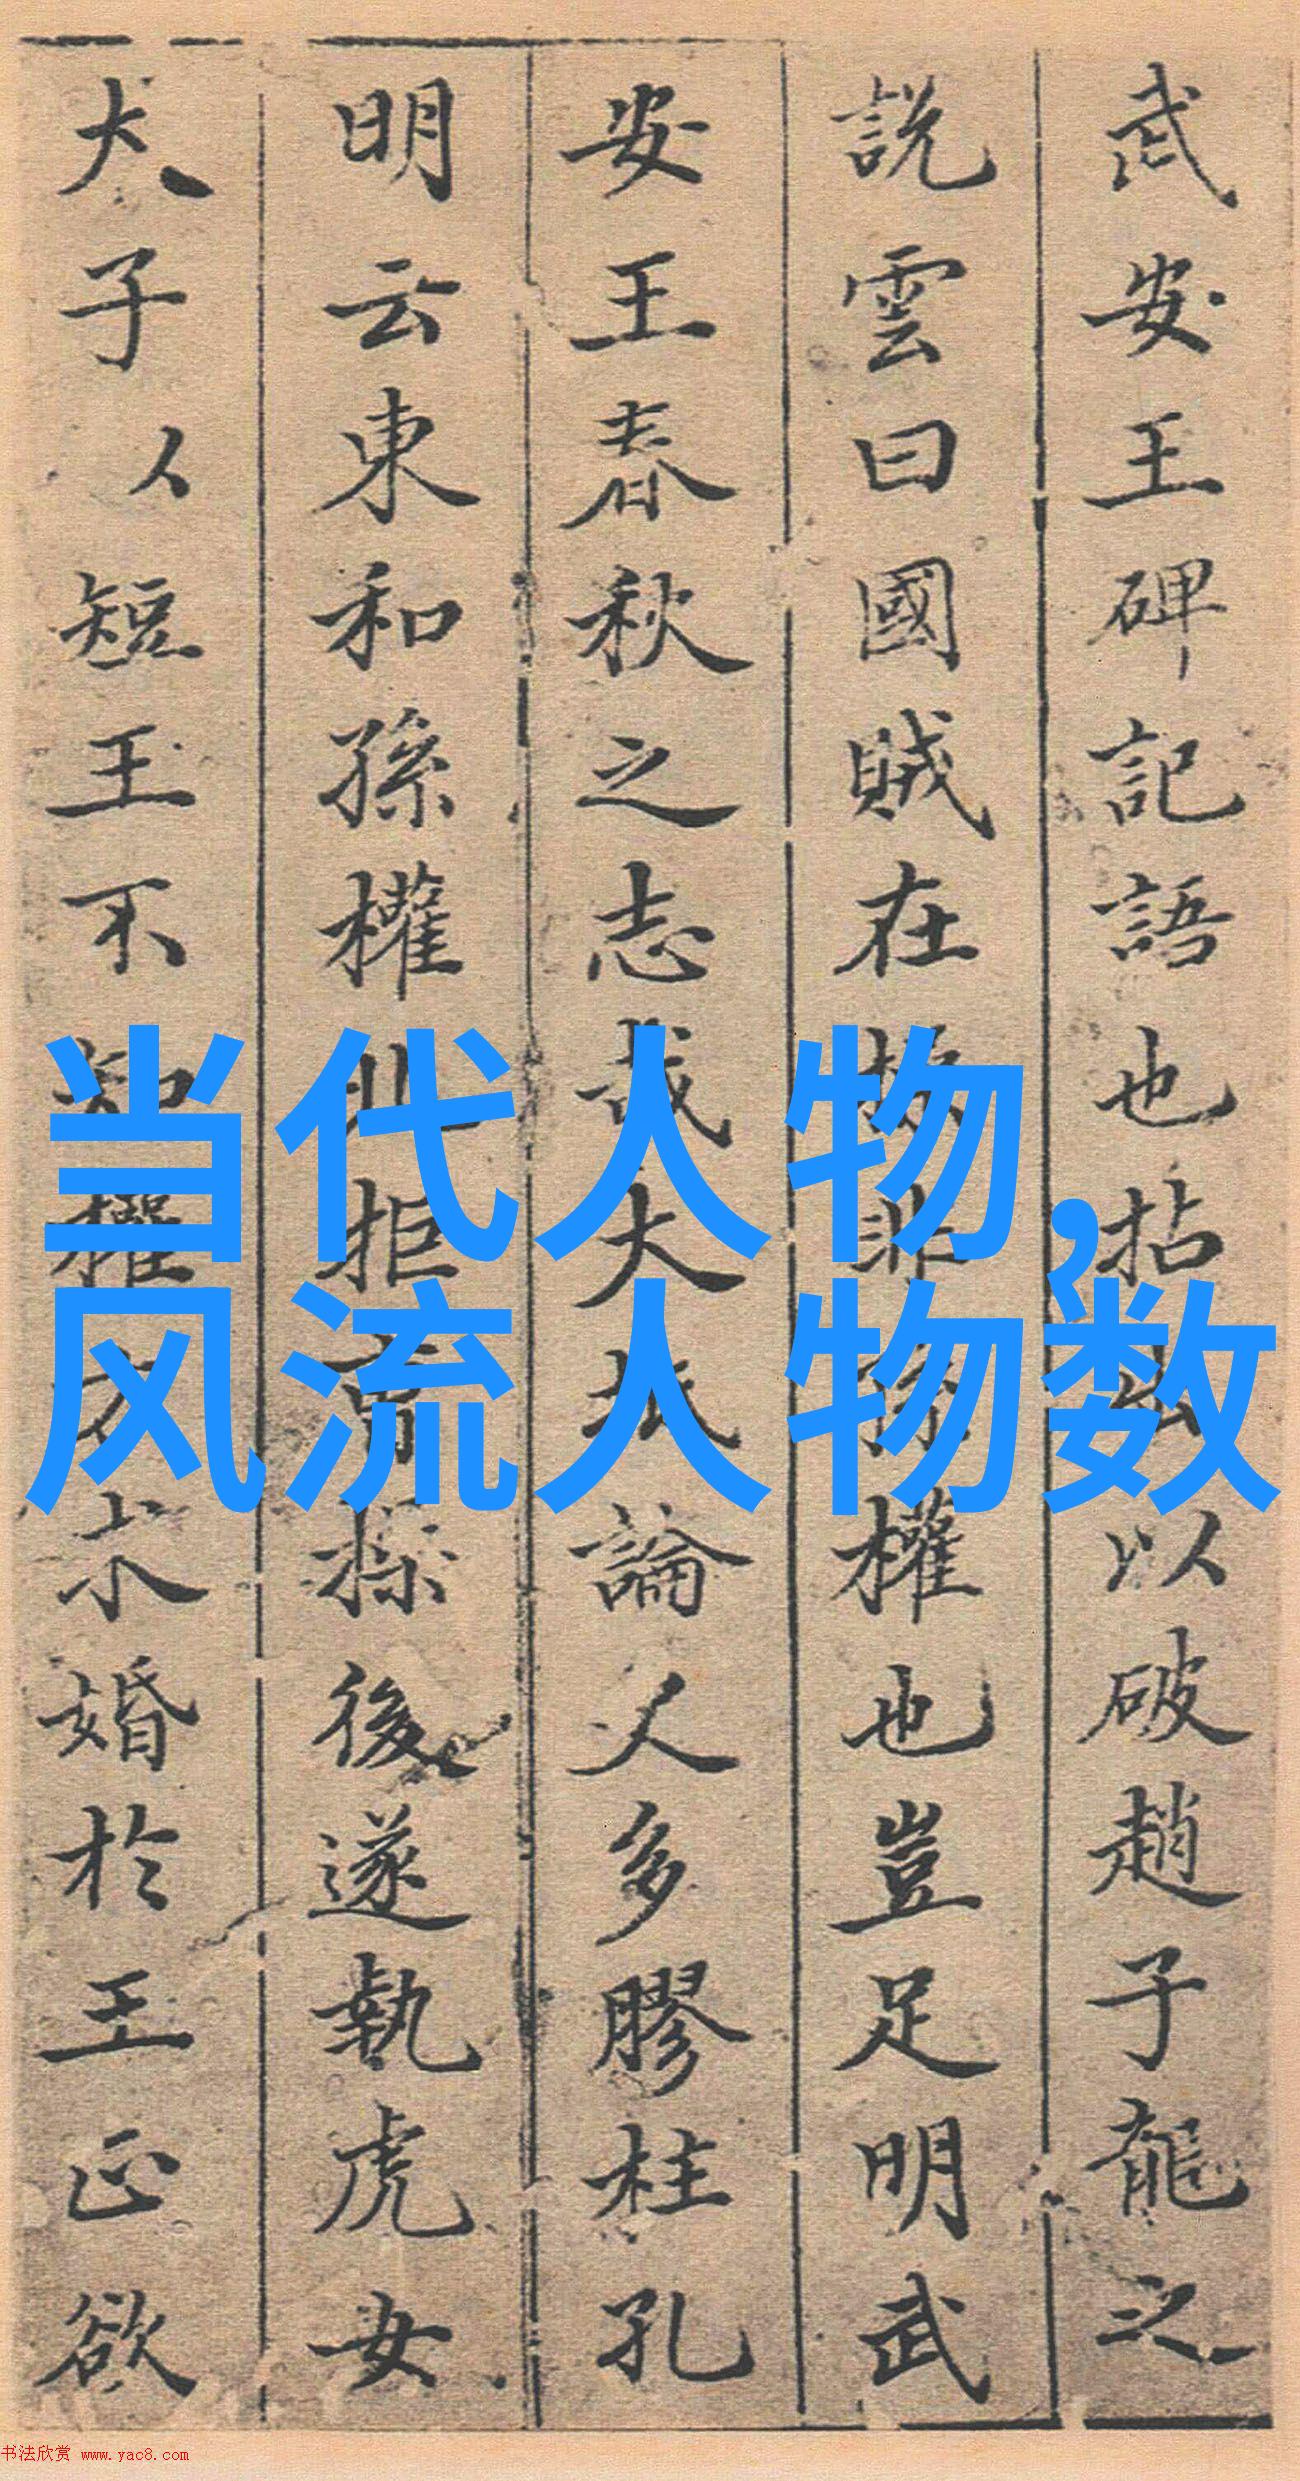 武安王碑記語也拈出以破趙子龍之
說雲曰國賊在操非孫權也豈足明武
安王春秋之志哉大抵論人多膠柱孔
明云東和孫權北拒曹操後遂執虎女
犬子以短王不知權方求婚於王正欲
当代人物,
风流人物数
书法欣赏 www.yac8.com